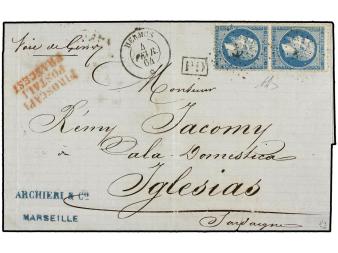 Voie de Gênes
HERMUS
4
FEVR.
64
PIROSCAFI
POSTALI
FRANCESI
PD
Monsieur
Rémy Jacomy
Sala Domestica
Iglesias
Sardaigne
ARCHIERI & Co.
MARSEILLE